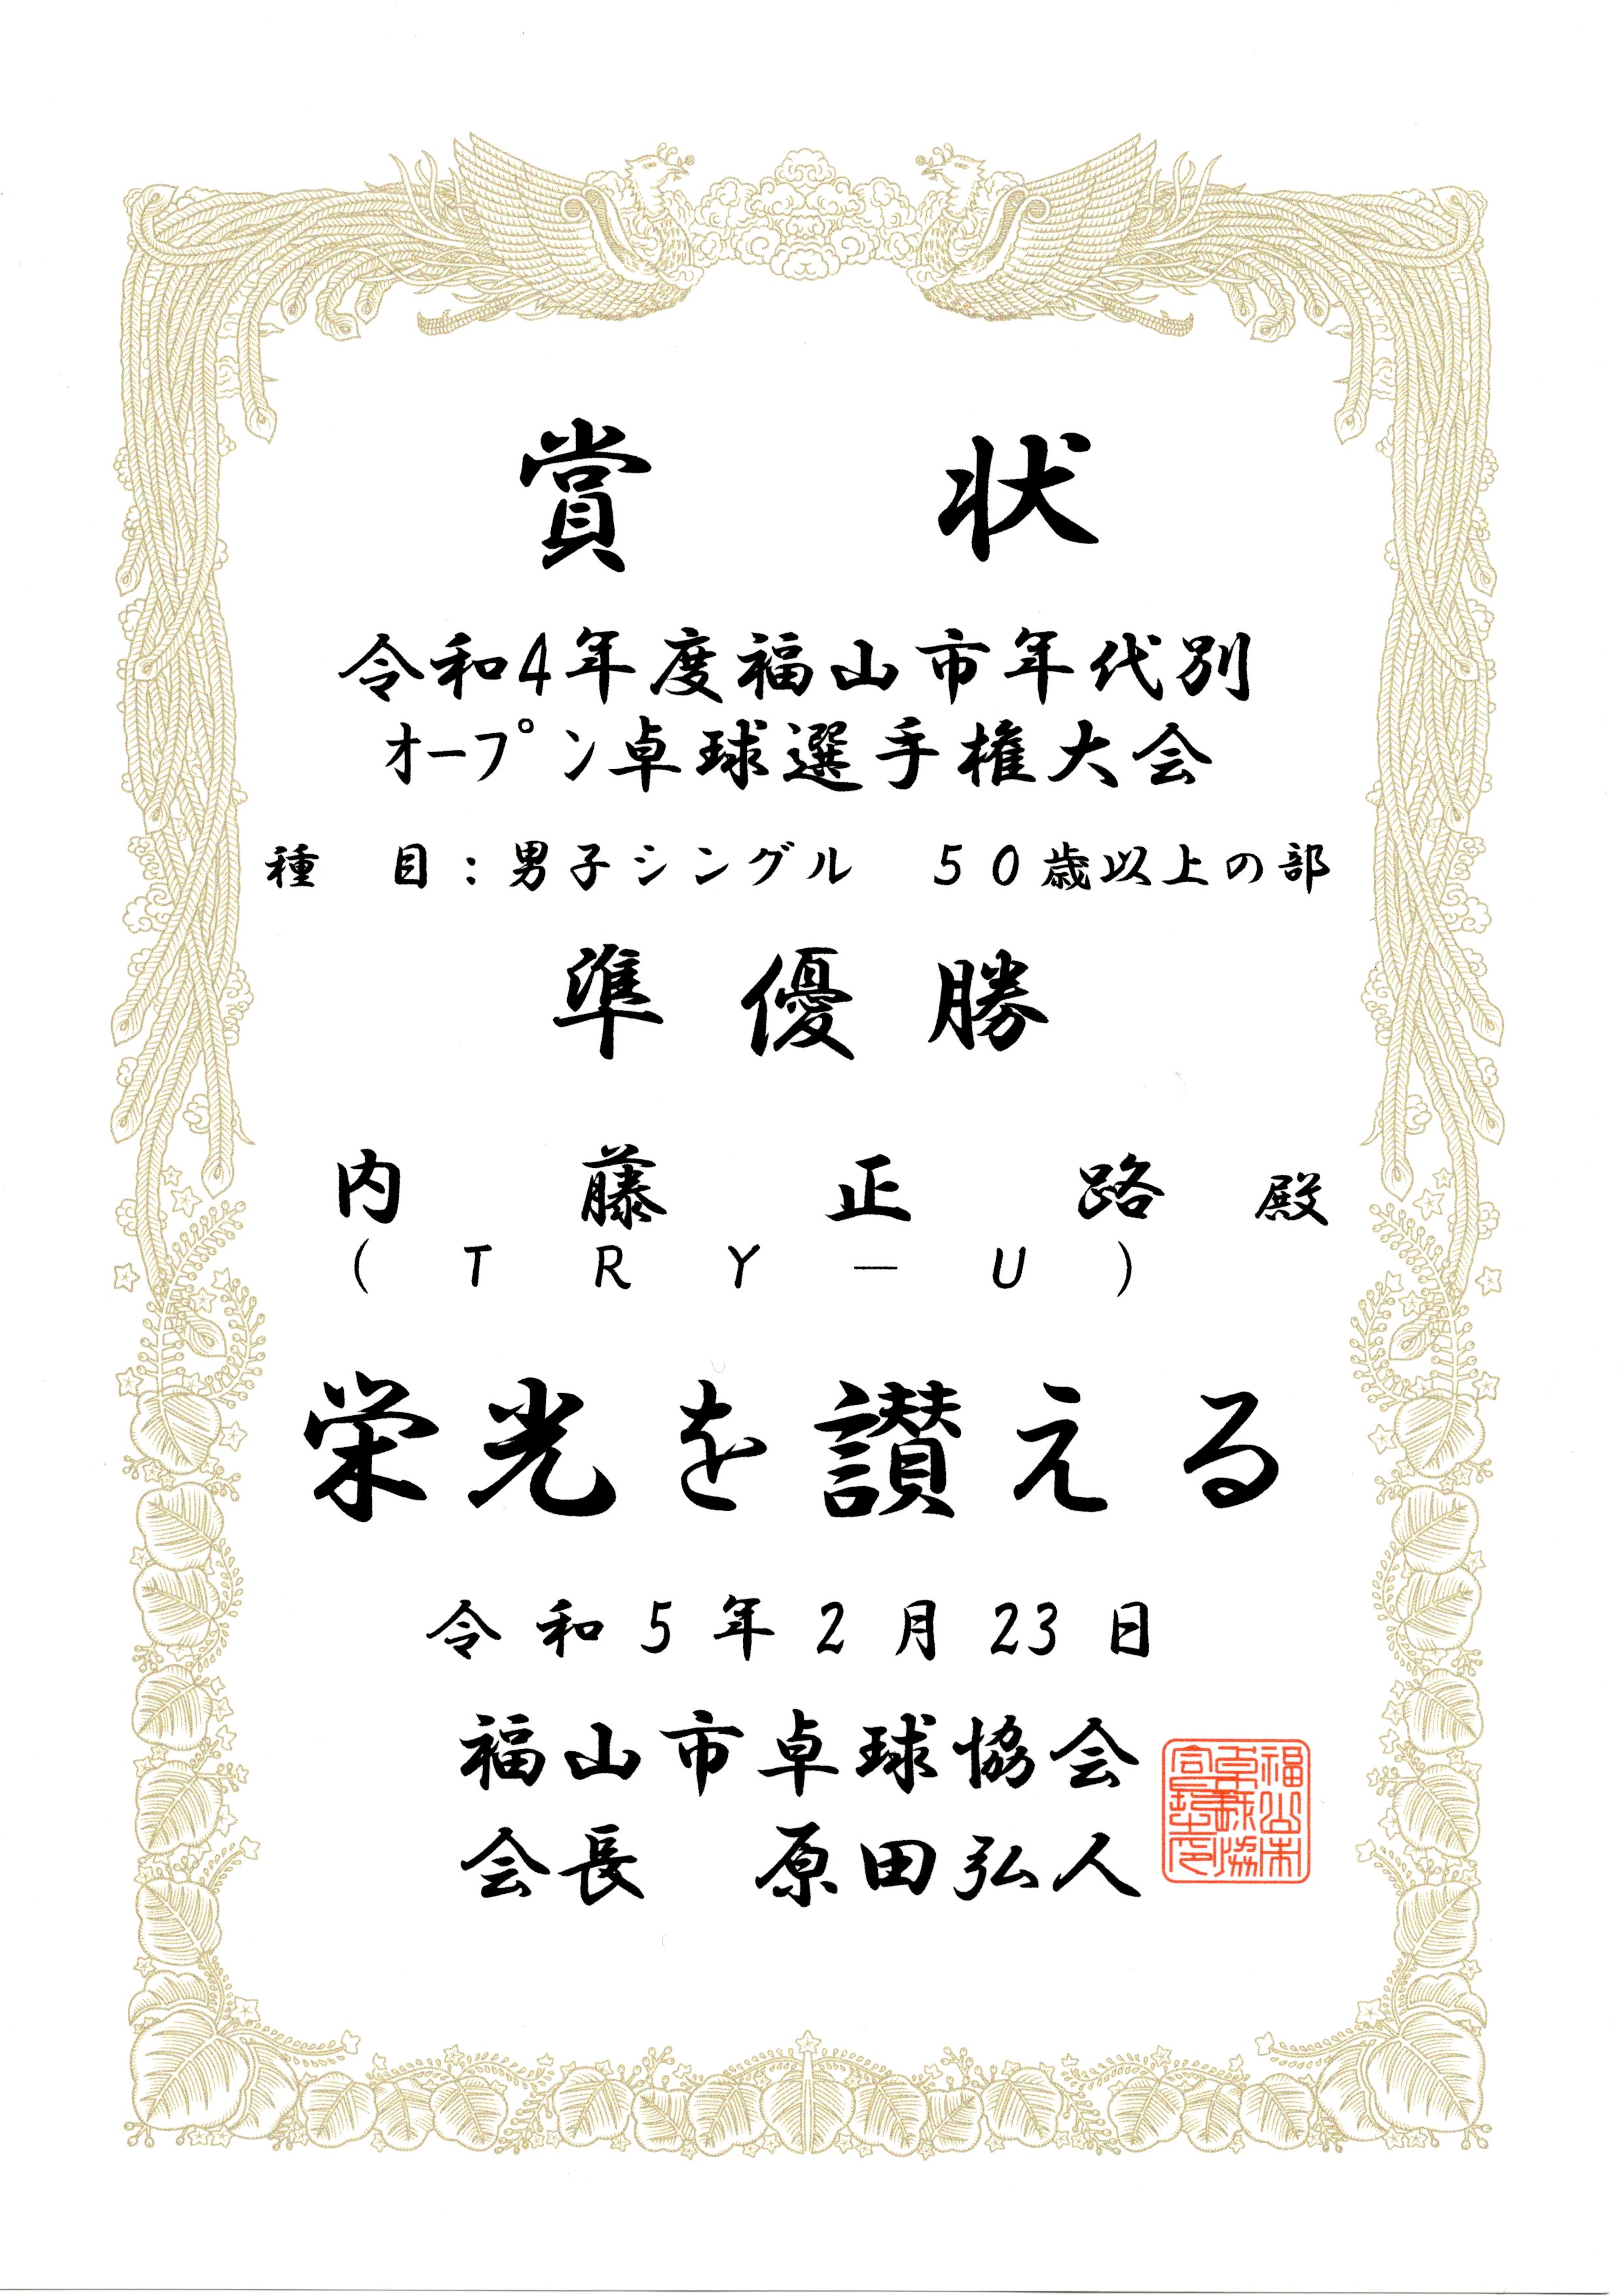 賞 状
令和4年度福山市年代別
オープン卓球選手権大会
種 目：男子シングル ５０歳以上の部
準優勝
内藤正路 殿
（ＴＲＹ－Ｕ）
栄光を讃える
令和5年2月23日
福山市卓球協会
会長 原田弘人
福山市
卓球協
会長之印